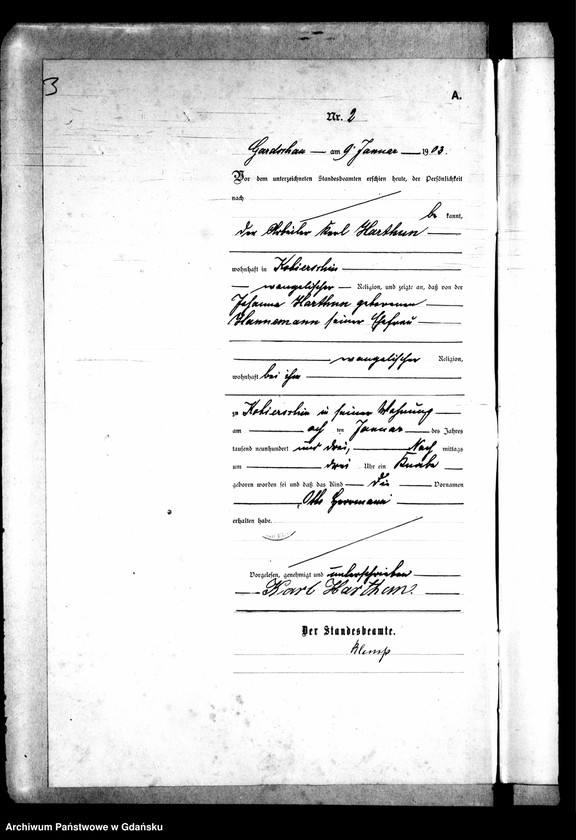 3
A.
Nr. 2
Gardschau am 9. Januar 1903.
Vor dem unterzeichneten Standesbeamten erschien heute, der Persönlichkeit
nach
be kannt,
der Arbeiter Karl Harthun
wohnhaft in
evangelischer Religion, und zeigte an, daß von der
Johanna Harthun geborenen
Hannemann seiner Ehefrau
evangelischer Religion,
wohnhaft bei ihm
zu in seiner Wohnung
am ten Januar des Jahres
tausend neunhundert und drei, Nach mittags
um drei Uhr ein Knabe
geboren worden sei und daß das Kind die Vornamen
Otto Herrmann
erhalten habe.
Vorgelesen, genehmigt und unterschrieben
Karl Harthun.
Der Standesbeamte.
Klemp
Archiwum Państwowe w Gdańsku